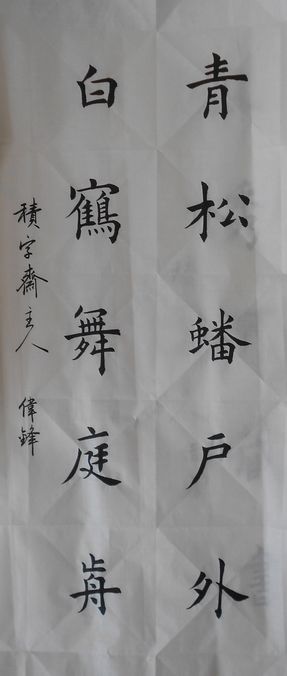 青松蟠戶外
白鶴舞庭歬
積字齋主人 偉鋒